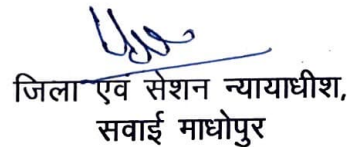 जिला एवं सेशन न्यायाधीश,
सवाई माधोपुर